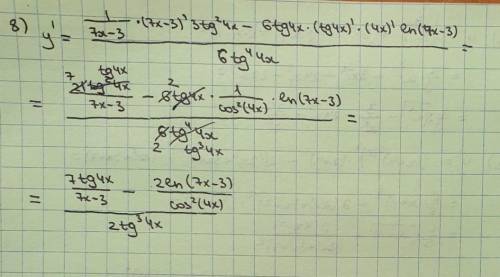 8) y' = (1/(7x-3) · (7x-3)' 3tg²4x - 6tg4x · (tg4x)' · (4x)' ln(7x-3)) / (6tg⁴4x) =
= ((7 21 tg²4x tg4x)/(7x-3) - 2 8tg4x · 1/cos²(4x) · ln(7x-3)) / (6tg⁴4x 2 tg³4x) =
= (7tg4x/(7x-3) - 2ln(7x-3)/cos²(4x)) / (2tg³4x)